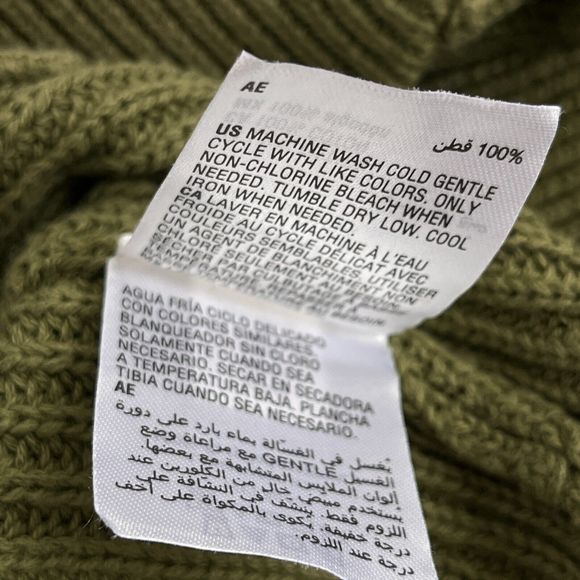 AE
100% قطن
US MACHINE WASH COLD GENTLE
CYCLE WITH LIKE COLORS. ONLY
NON-CHLORINE BLEACH WHEN
NEEDED. TUMBLE DRY LOW. COOL
IRON WHEN NEEDED.
CA LAVER EN MACHINE À L'EAU
FROIDE AU CYCLE DÉLICAT AVEC
COULEURS SEMBLABLES. UTILISER
UN AGENTS DE BLANCHIMENT NON
SEULEMENT AU BESOIN.
AGUA FRÍA CICLO DELICADO
CON COLORES SIMILARES.
BLANQUEADOR SIN CLORO
SOLAMENTE CUANDO SEA
NECESARIO. SECAR EN SECADORA
A TEMPERATURA BAJA. PLANCHA
TIBIA CUANDO SEA NECESARIO.
AE
يُغسل في الغسّالة بماء بارد على دورة
الغسيل GENTLE مع مراعاة وضع
ألوان الملابس المتشابهة مع بعضها.
يستخدم مبيض خالٍ من الكلورين عند
اللزوم فقط. ينشف في النشافة على
درجة خفيفة. يكوى بالمكواة على أخف
درجة عند اللزوم.